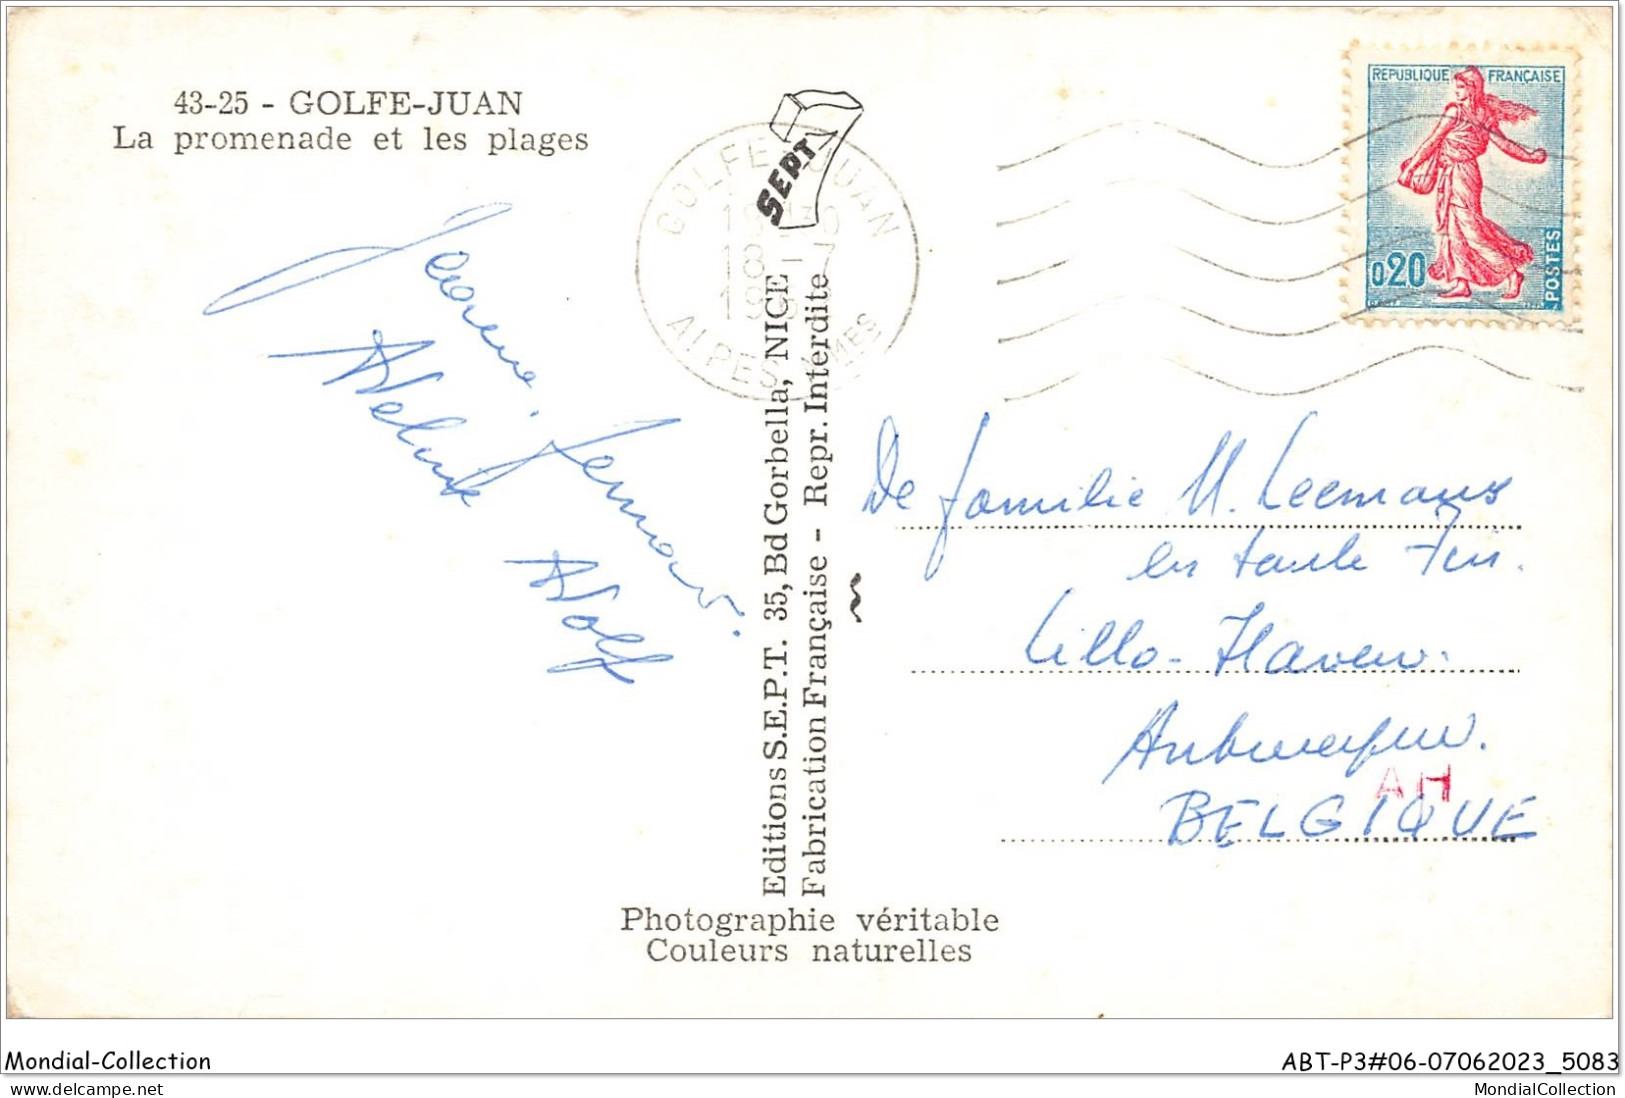 43-25 - GOLFE-JUAN
La promenade et les plages
SEPT
GOLFE JUAN
18 - 7
ALPES MMES
REPUBLIQUE FRANÇAISE
0,20
POSTES
Adolf
Editions S.E.P.T. 35, Bd Gorbella, NICE
Fabrication Française - Repr. Interdite
De familie M. Leemans
en tante Fin.
Lillo-Haven.
Antwerpen.
AH
BELGIQUE
Photographie véritable
Couleurs naturelles
Mondial-Collection
ABT-P3#06-07062023_5083
delcampe.net
MondialCollection